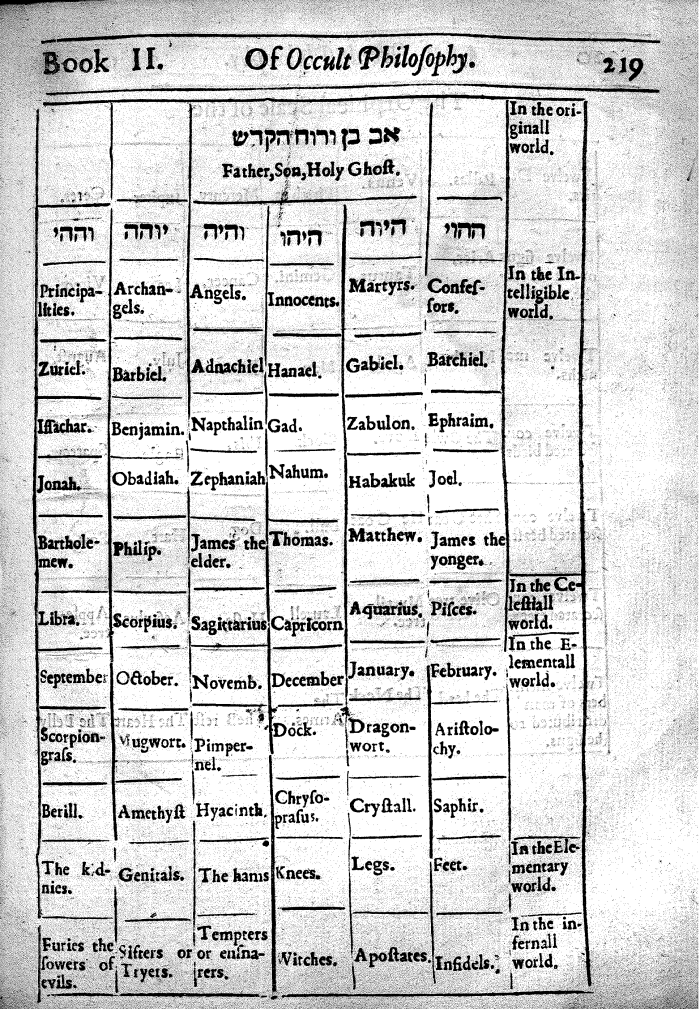 Book II. Of Occult Philoſophy. 219
In the ori-
ginall
world.
אב בן ורוח הקדש
Father, Son, Holy Ghoſt.
וההי יוהה והיה היהו היוה ההוי
Principa-
lities.
Archan-
gels.
Angels.
Innocents.
Martyrs.
Confeſ-
ſors.
In the In-
telligible
world.
Zuriel.
Barbiel.
Adnachiel
Hanael.
Gabiel.
Barchiel.
Iſſachar.
Benjamin.
Napthalin
Gad.
Zabulon.
Ephraim.
Jonah.
Obadiah.
Zephaniah
Nahum.
Habakuk
Joel.
Barthole-
mew.
Philip.
James the
elder.
Thomas.
Matthew.
James the
yonger.
Libra.
Scorpius.
Sagittarius
Capricorn
Aquarius.
Piſces.
In the Ce-
leſtiall
world.
September
October.
Novemb.
December
January.
February.
In the E-
lementall
world.
Scorpion-
graſs.
Mugwort.
Pimper-
nel.
Dock.
Dragon-
wort.
Ariſtolo-
chy.
Berill.
Amethyſt
Hyacinth.
Chryſo-
praſus.
Cryſtall.
Saphir.
The kid-
nies.
Genitals.
The hams
Knees.
Legs.
Feet.
In the Ele-
mentary
world.
Furies the
ſowers of
evils.
Sifters or
Tryers.
Tempters
or enſna-
rers.
Witches.
Apoſtates.
Infidels.
In the in-
fernall
world.